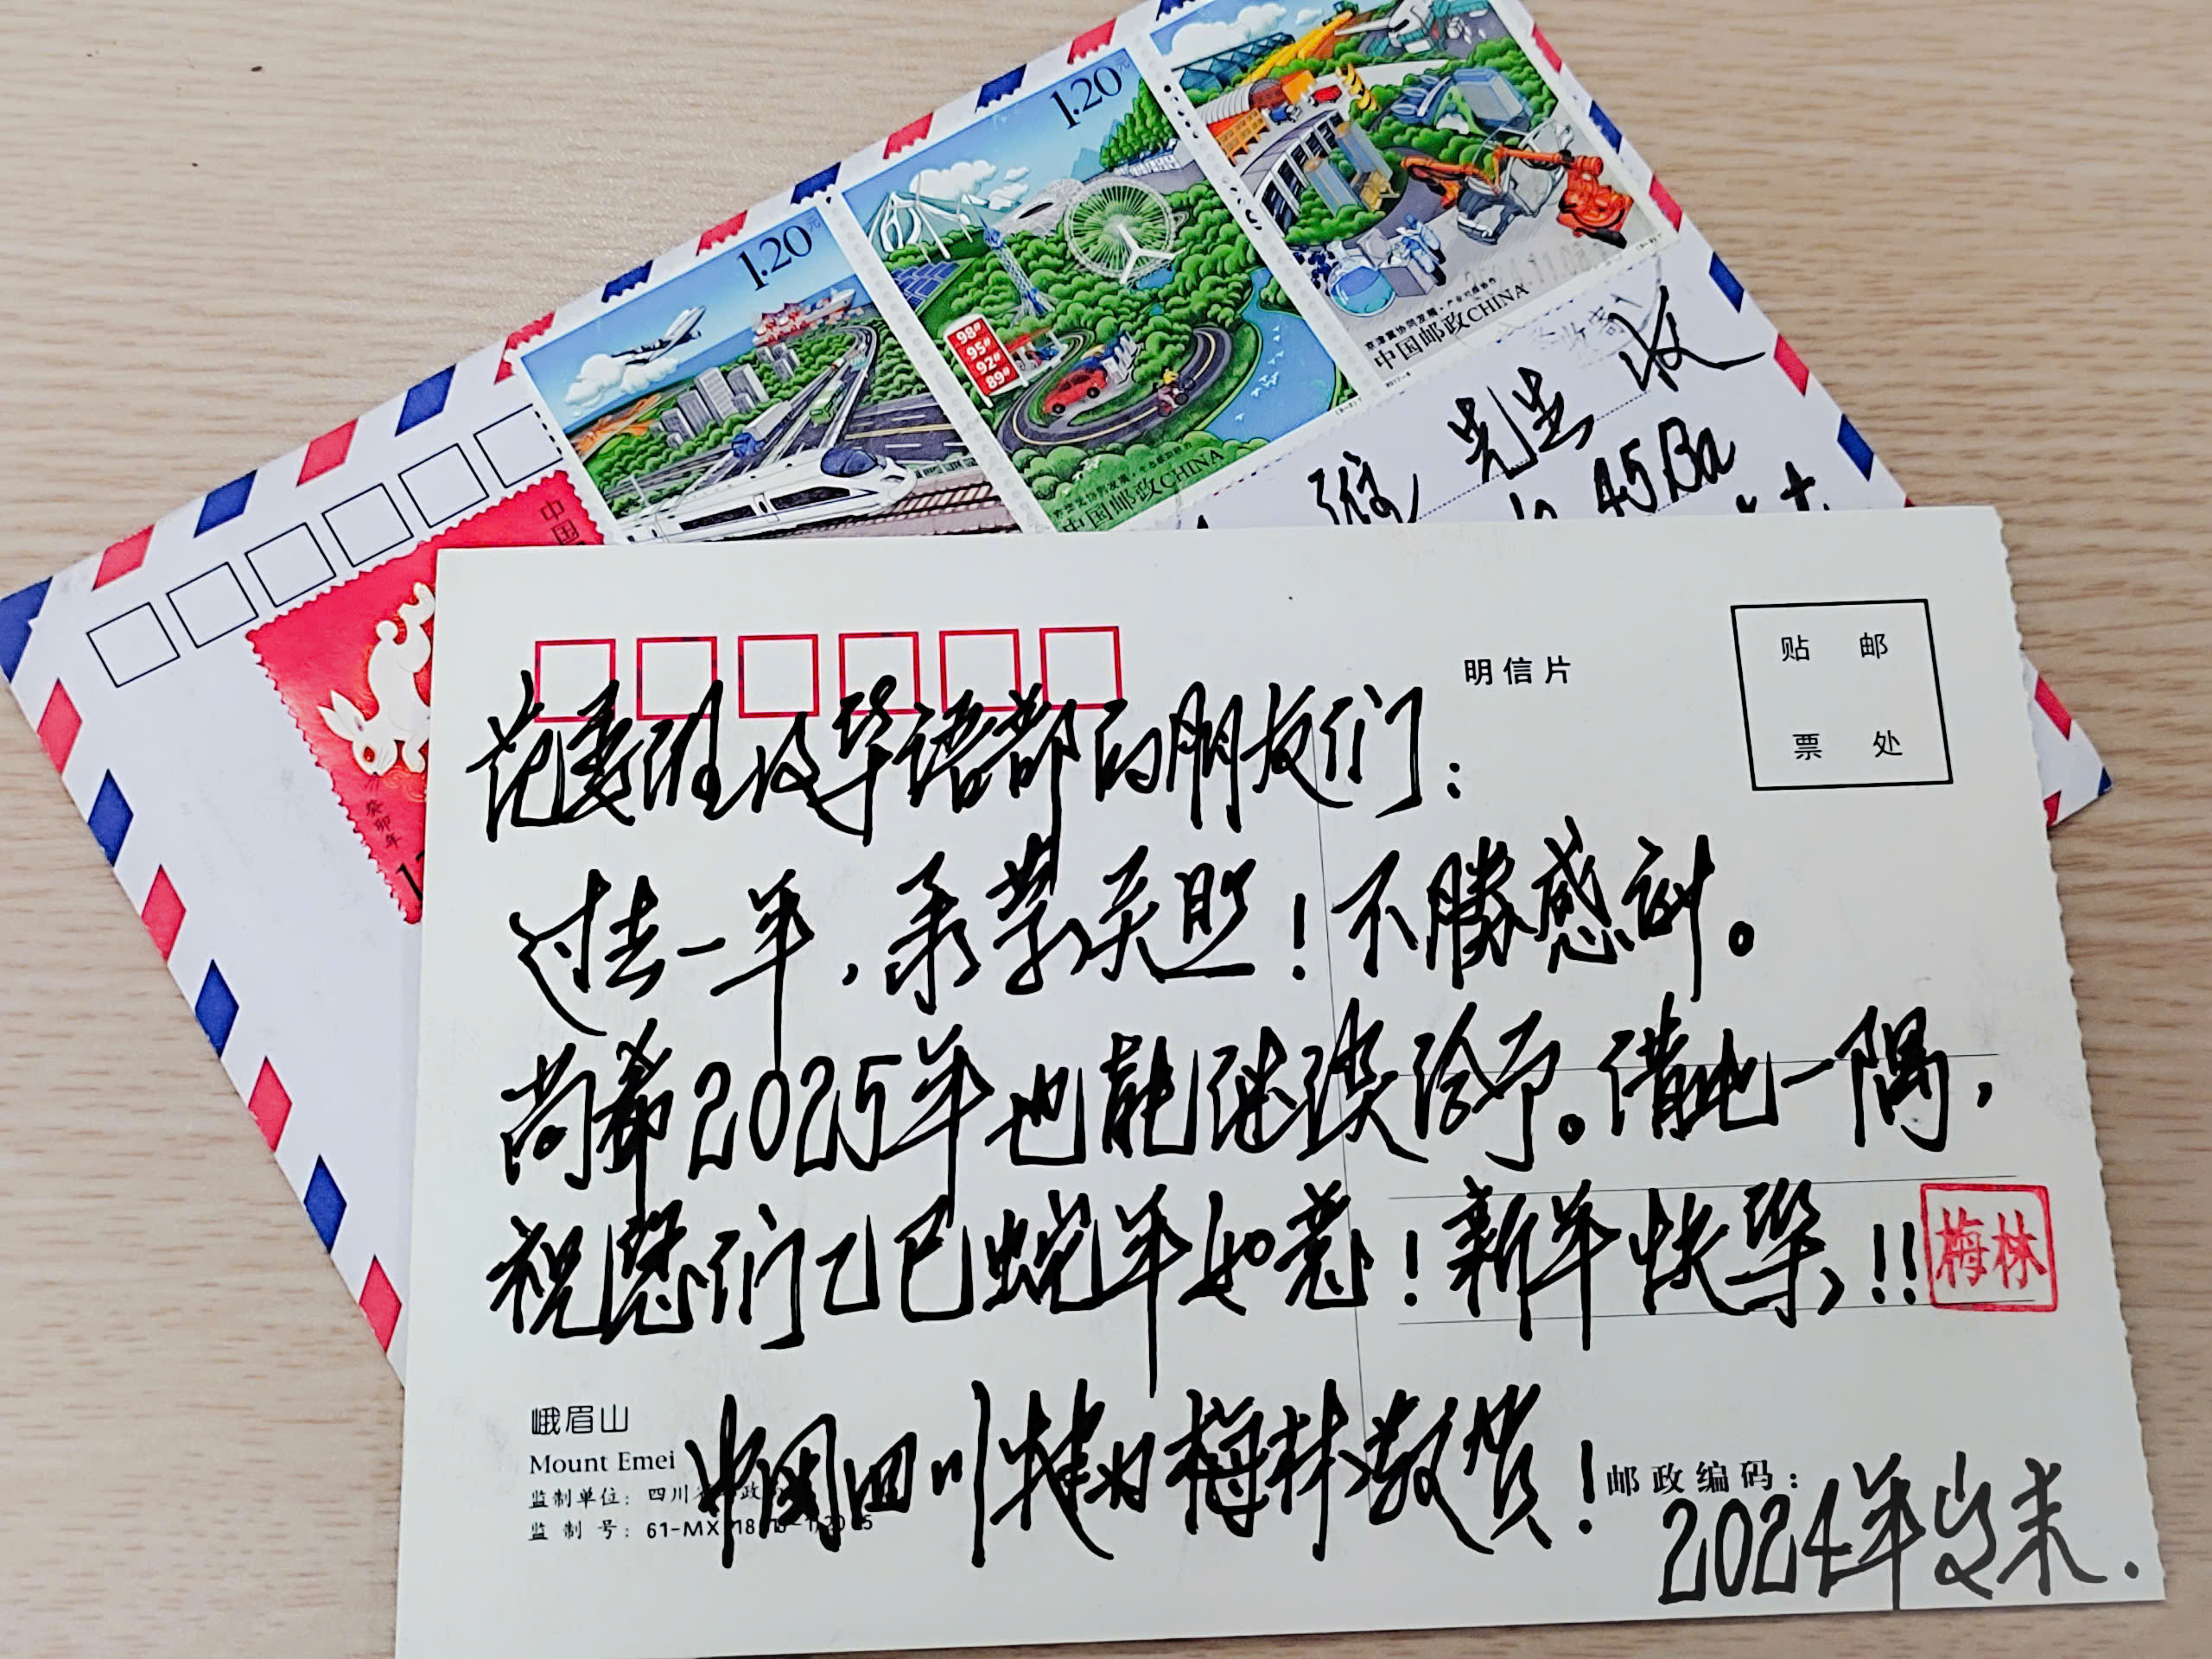 1.20元
1.20元
98#
95#
92#
89#
中国邮政CHINA
中国邮政CHINA
先生 收
45Ba
中国
癸卯年
明信片
贴 邮
票 处
范 及华语部的朋友们：
过去一年，承蒙关照！不勝感谢。
尚希2025年也能继续给予。借此一隅，
祝您们乙巳蛇年如意！新年快樂！！
梅林
峨眉山
Mount Emei
监制单位：四川
监 制 号：61-MX
中国四川犍为梅林敬贺！
邮政编码：
2024年岁末.